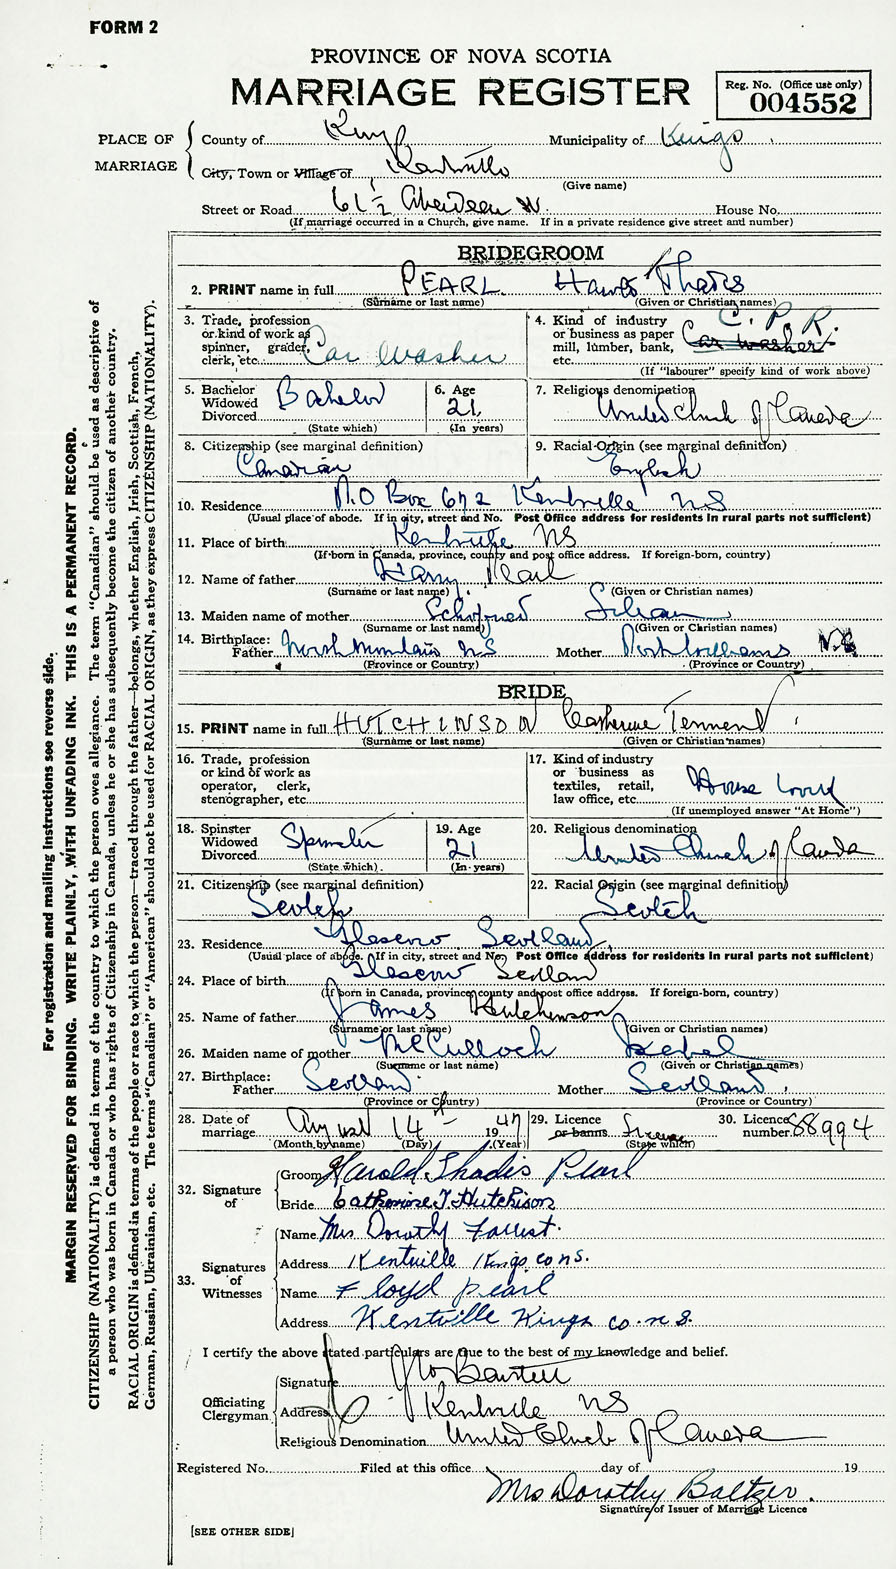 FORM 2
PROVINCE OF NOVA SCOTIA
MARRIAGE REGISTER
Reg. No. (Office use only)
004552
PLACE OF MARRIAGE
County of Kings Municipality of Kings
City, Town or Village of Kentville
(Give name)
Street or Road 61 1/2 Aberdeen W. House No.
(If marriage occurred in a Church, give name. If in a private residence give street and number)
BRIDEGROOM
2. PRINT name in full PEARL Harold Thadis
(Surname or last name) (Given or Christian names)
3. Trade, profession or kind of work as spinner, grader, clerk, etc. Car Washer
4. Kind of industry or business as paper mill, lumber, bank, etc. C. P. R. Car washer
(If "labourer" specify kind of work above)
5. Bachelor Widowed Divorced Bachelor
(State which)
6. Age 21
(In years)
7. Religious denomination United Church of Canada
8. Citizenship (see marginal definition) Canadian
9. Racial Origin (see marginal definition) English
10. Residence P.O Box 672 Kentville NS
(Usual place of abode. If in city, street and No. Post Office address for residents in rural parts not sufficient)
11. Place of birth Kentville NS
(If born in Canada, province, county and post office address. If foreign-born, country)
12. Name of father Harry Pearl
(Surname or last name) (Given or Christian names)
13. Maiden name of mother
(Surname or last name) (Given or Christian names)
14. Birthplace: Father North Mountain NS Mother Port Williams NS
(Province or Country) (Province or Country)
BRIDE
15. PRINT name in full HUTCHINSON Catherine Tennent
(Surname or last name) (Given or Christian names)
16. Trade, profession or kind of work as operator, clerk, stenographer, etc.
17. Kind of industry or business as textiles, retail, law office, etc. House work
(If unemployed answer "At Home")
18. Spinster Widowed Divorced Spinster
(State which)
19. Age 21
(In years)
20. Religious denomination United Church of Canada
21. Citizenship (see marginal definition) Scotch
22. Racial Origin (see marginal definition) Scotch
23. Residence Glasgow Scotland
(Usual place of abode. If in city, street and No. Post Office address for residents in rural parts not sufficient)
24. Place of birth Glasgow Scotland
(If born in Canada, province, county and post office address. If foreign-born, country)
25. Name of father James Hutchinson
(Surname or last name) (Given or Christian names)
26. Maiden name of mother McCulloch Isobel
(Surname or last name) (Given or Christian names)
27. Birthplace: Father Scotland Mother Scotland
(Province or Country) (Province or Country)
28. Date of marriage August 14 1947
(Month by name) (Day) (Year)
29. Licence or banns License
(State which)
30. Licence number 88994
32. Signature of
Groom Harold Thadis Pearl
Bride Catherine T. Hutchison
33. Signatures of Witnesses
Name Mrs Dorothy Forrest.
Address Kentville Kings co ns.
Name Floyd pearl
Address Kentville Kings co. n s.
I certify the above stated particulars are true to the best of my knowledge and belief.
Officiating Clergyman
Signature
Address Kentville NS
Religious Denomination United Church of Canada
Registered No. Filed at this office day of 19
Mrs Dorothy Baltzer.
Signature of Issuer of Marriage Licence
[SEE OTHER SIDE]
For registration and mailing instructions see reverse side.
MARGIN RESERVED FOR BINDING. WRITE PLAINLY, WITH UNFADING INK. THIS IS A PERMANENT RECORD.
CITIZENSHIP (NATIONALITY) is defined in terms of the country to which the person owes allegiance. The term "Canadian" should be used as descriptive of
a person who was born in Canada or who has rights of Citizenship in Canada, unless he or she has subsequently become the citizen of another country.
RACIAL ORIGIN is defined in terms of the people or race to which the person—traced through the father—belongs, whether English, Irish, Scottish, French,
German, Russian, Ukrainian, etc. The terms "Canadian" or "American" should not be used for RACIAL ORIGIN, as they express CITIZENSHIP (NATIONALITY).